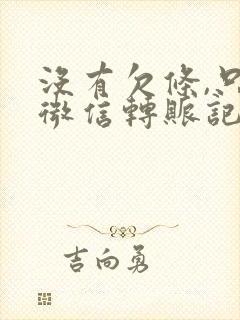 沒有欠條,只
微信轉賬記
吉向勇